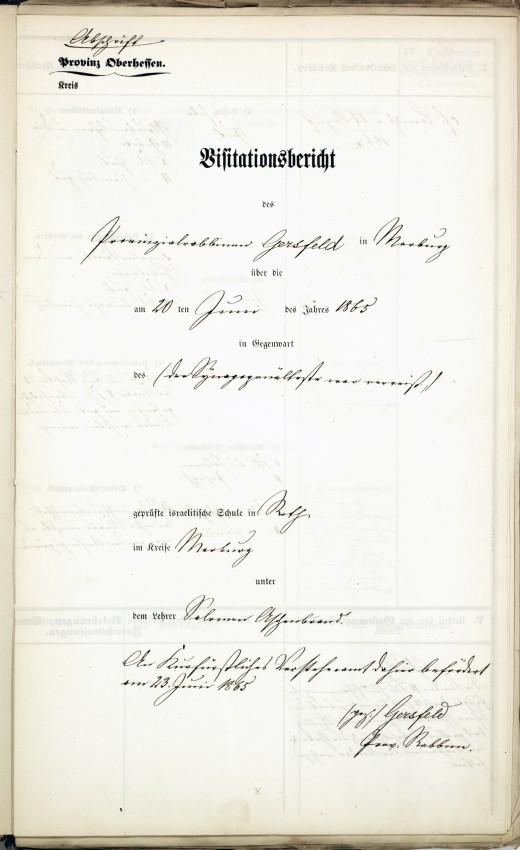 Abschrift
Provinz Oberhessen.
Kreis
Visitationsbericht
des
Provinzialrabbinen Gersfeld in Marburg
über die
am 20 ten Juni des Jahres 1865
in Gegenwart
des (der Synagogenälteste war verreist)
geprüfte israelitische Schule in Roth
im Kreise Marburg
unter
dem Lehrer Salomon Aschenbrand.
An Kurfürstliches Vorsteheramt dahier befördert
am 23. Juni 1865
(gez.) Gersfeld
Prov. Rabbinen.